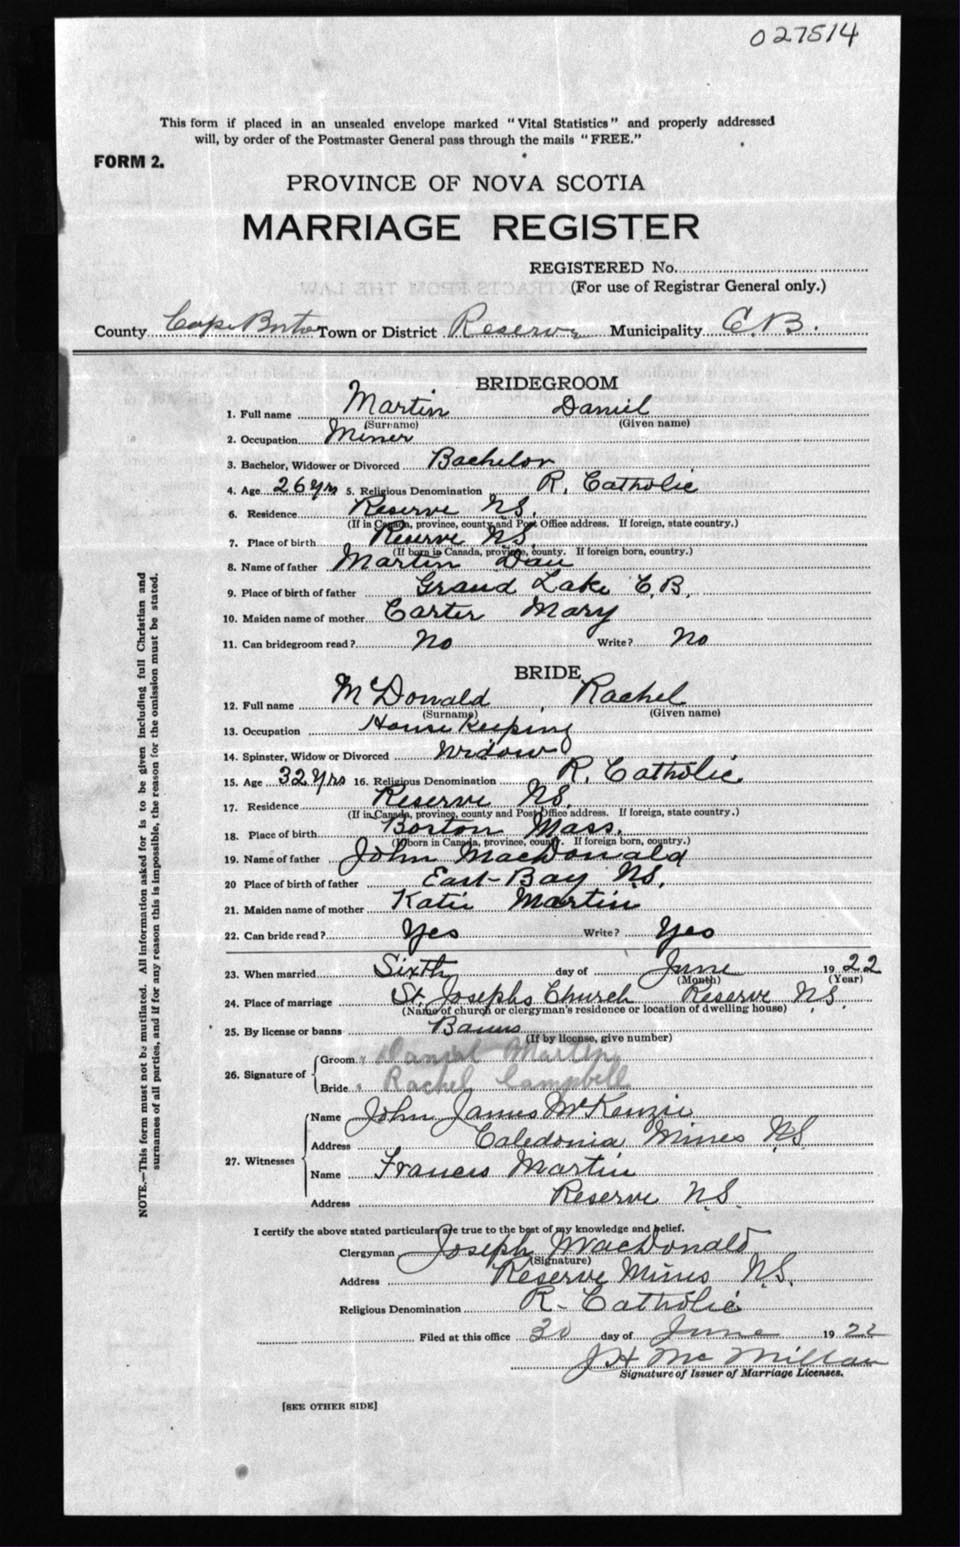 027514
This form if placed in an unsealed envelope marked "Vital Statistics" and properly addressed
will, by order of the Postmaster General pass through the mails "FREE."
FORM 2.
PROVINCE OF NOVA SCOTIA
MARRIAGE REGISTER
REGISTERED No.
(For use of Registrar General only.)
County Cape Breton Town or District Reserve Municipality C.B.
BRIDEGROOM
1. Full name Martin Daniel
(Surname) (Given name)
2. Occupation Miner
3. Bachelor, Widower or Divorced Bachelor
4. Age 26 yrs 5. Religious Denomination R. Catholic
6. Residence Reserve N.S.
(If in Canada, province, county and Post Office address. If foreign, state country.)
7. Place of birth Reserve N.S.
(If born in Canada, province, county. If foreign born, country.)
8. Name of father Martin Dan
9. Place of birth of father Grand Lake C.B.
10. Maiden name of mother Carter Mary
11. Can bridegroom read? No Write? No
BRIDE
12. Full name McDonald, Rachel
(Surname) (Given name)
13. Occupation House Keeping
14. Spinster, Widow or Divorced Widow
15. Age 32 yrs 16. Religious Denomination R. Catholic
17. Residence Reserve N.S.
(If in Canada, province, county and Post Office address. If foreign, state country.)
18. Place of birth Boston Mass.
(If born in Canada, province, county. If foreign born, country.)
19. Name of father John MacDonald
20 Place of birth of father East-Bay N.S.
21. Maiden name of mother Katie Martin
22. Can bride read? Yes Write? Yes
23. When married Sixth day of June 1922
(Month) (Year)
24. Place of marriage St. Josephs Church Reserve N.S.
(Name of church or clergyman's residence or location of dwelling house)
25. By license or banns Banns
(If by license, give number)
26. Signature of Groom Daniel Martin
Bride Rachel Campbell
27. Witnesses Name John James McKenzie
Address Caledonia Mines N.S.
Name Francis Martin
Address Reserve N.S.
I certify the above stated particulars are true to the best of my knowledge and belief.
Clergyman Joseph MacDonald
(Signature)
Address Reserve Mines N.S.
Religious Denomination R. Catholic
Filed at this office 30 day of June 1922
J H McMillan
Signature of Issuer of Marriage Licenses.
[SEE OTHER SIDE]
NOTE.—This form must not be mutilated. All information asked for is to be given including full Christian and
surnames of all parties, and if for any reason this is impossible, the reason for the omission must be stated.